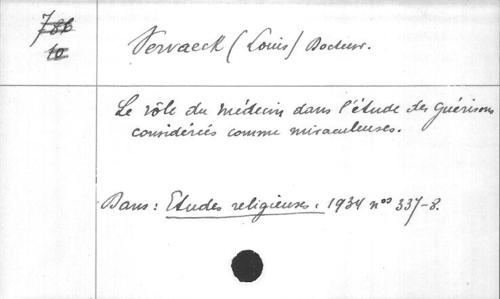 786
10
Vervaeck (Louis) Docteur.
Le rôle du médecin dans l'étude des guérisons
considérées comme miraculeuses.
Dans : Etudes religieuses. 1934 nos 337-8.